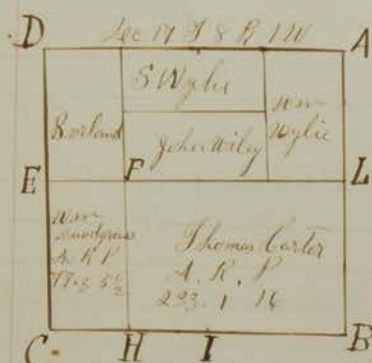 D Sec 17 T 8 R 1 W A
S. Wylie
Wm
Wylie
Borland
John Wiley
E F L
Wm
Snodgrass
A. R. P
77. 3 5 1/2
Thomas Carter
A. R. P
293. 1 14
C H I B